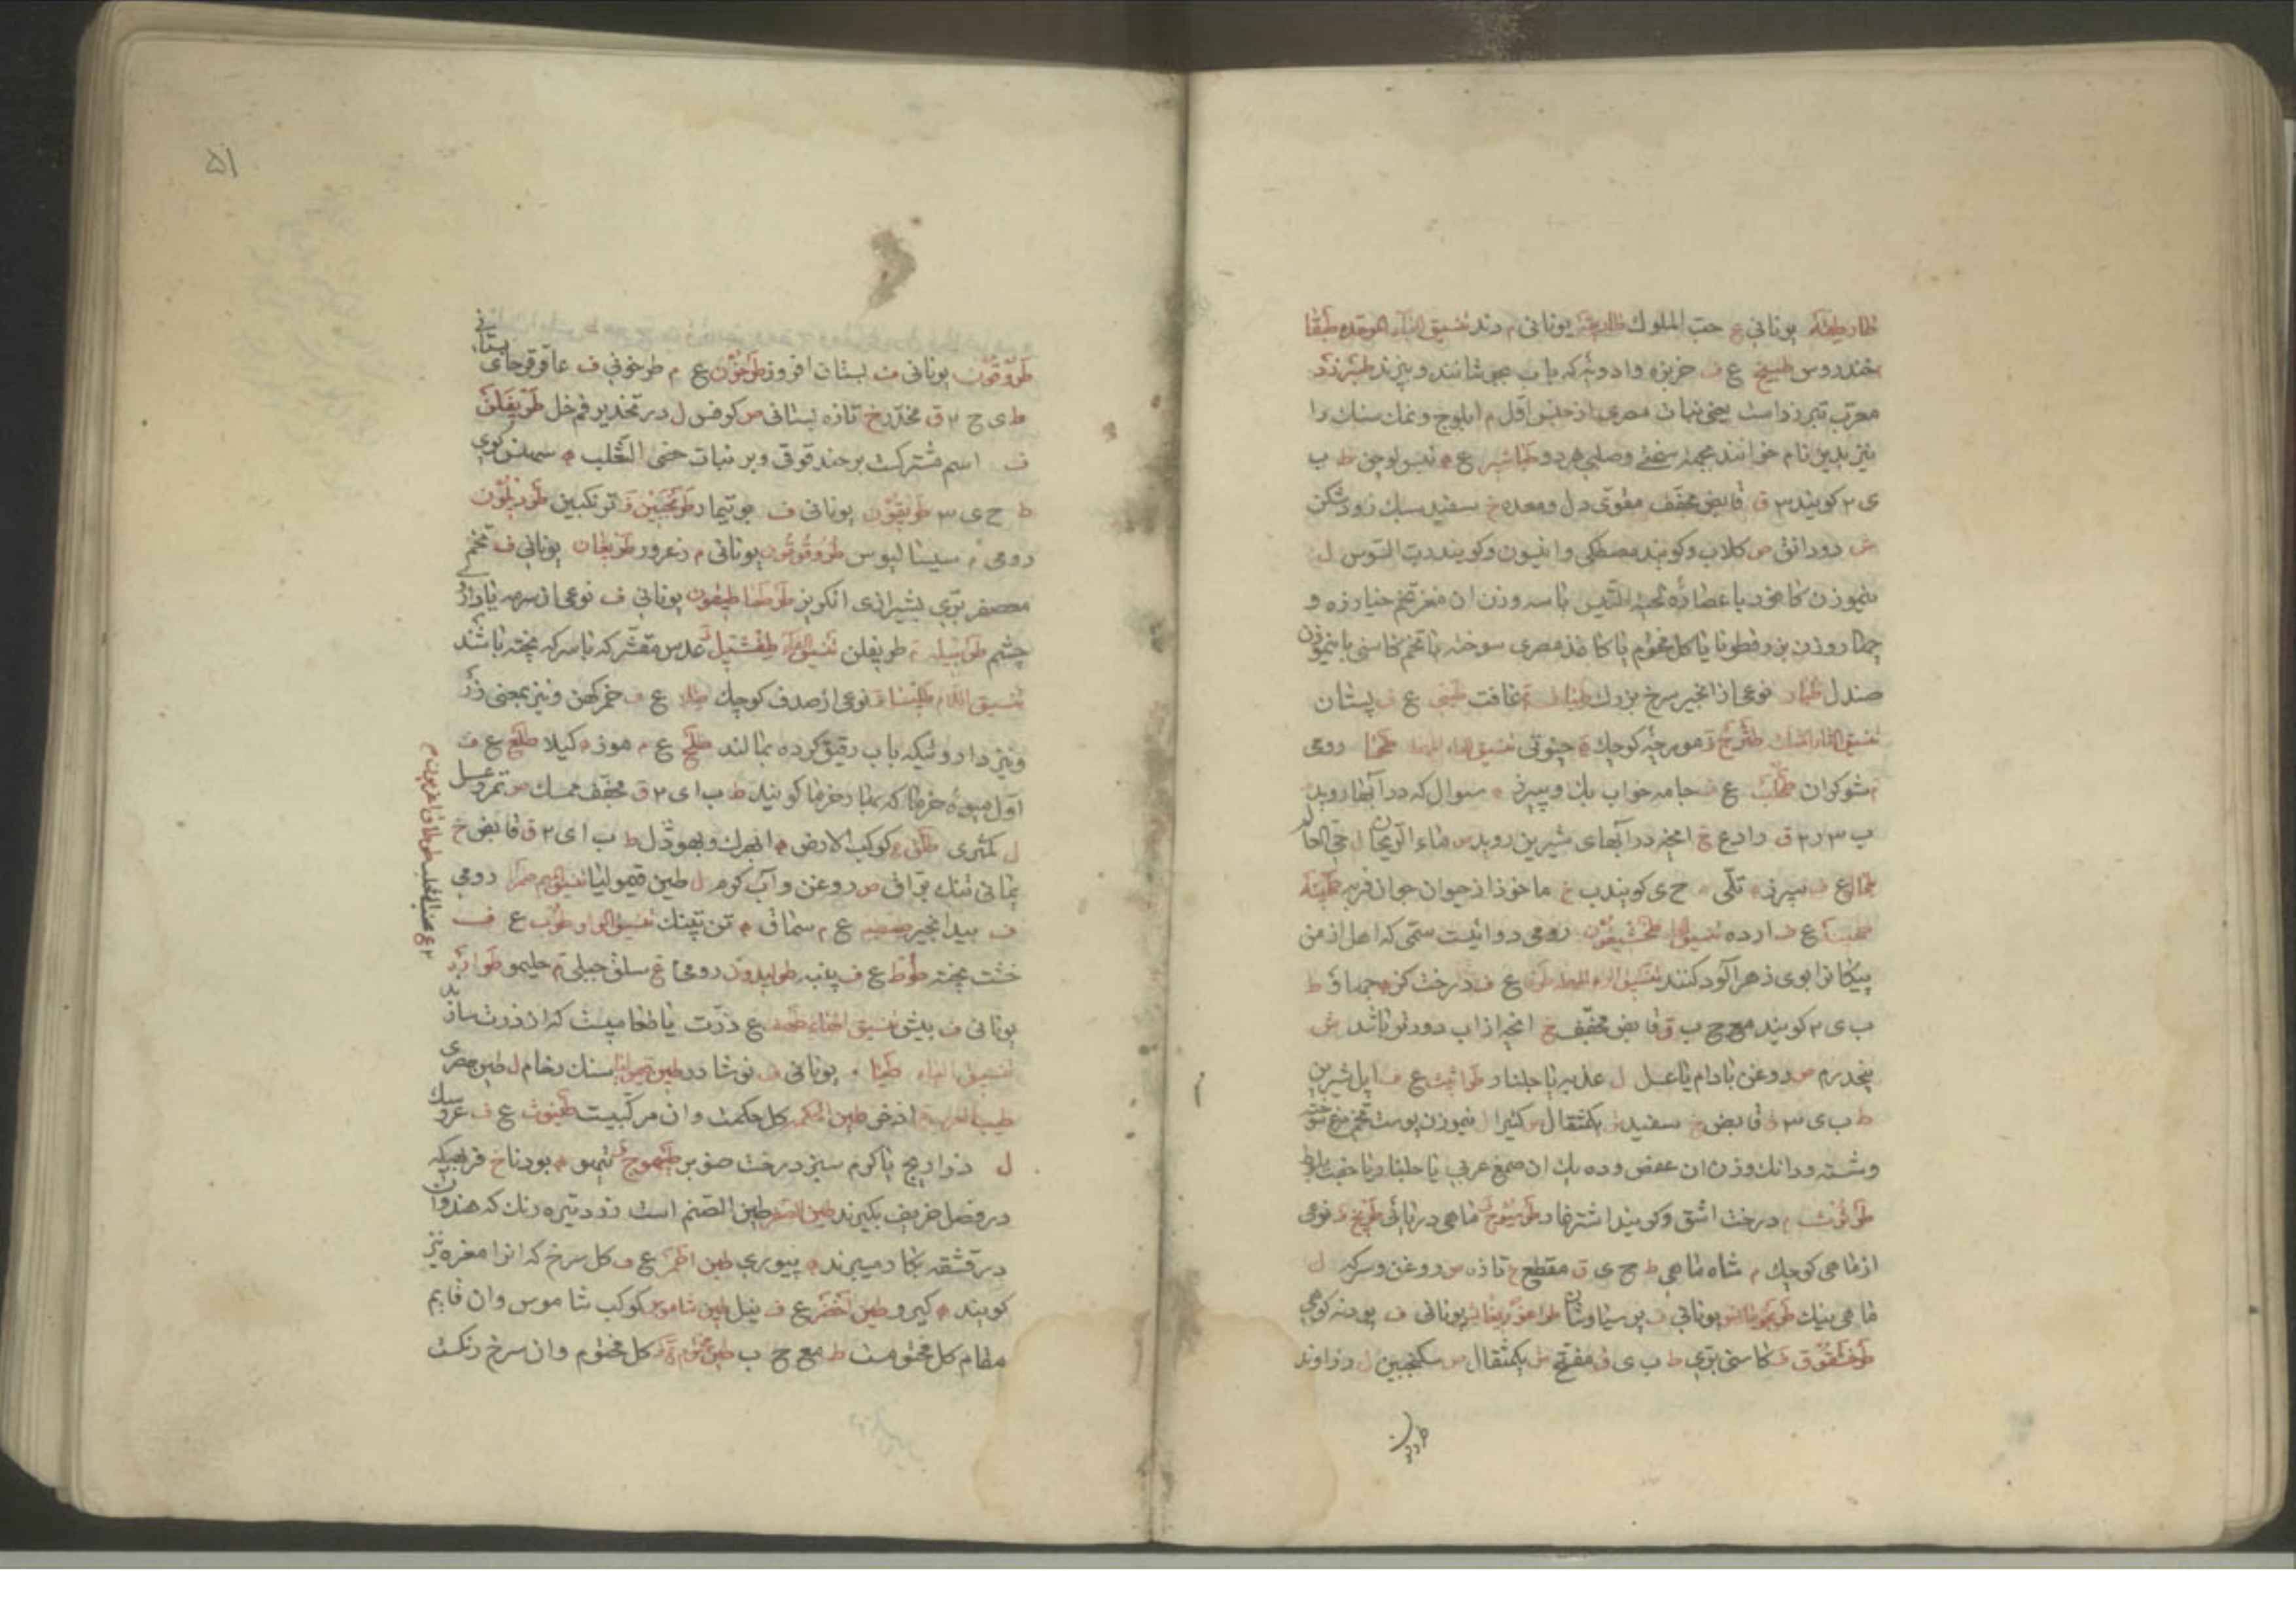 طارطقه یونانی ع حب الملوک یونانی م دند تنسیق الباء الموحده طبقا
خندروس طبیخ ع ف خربزه و ادویه که باب بجوشانند و بپزند طبرزد
معرب تبرزد است یعنی نبات مصری از جنس اول م ابلوج و نمک سنک را
نیز بدین نام خوانند بجهة سختی و صلبی هر دو طباشیر ع ه تنبسلوچن ط ب
ی ۲ کویند ۳ ق قابض مجفف مقوی دل و معده خ سفید سبک زود شکن
ش دو دانق ص کلاب و کویند مصطکی و انیسون و کویند رب السوس ل
بنموزن کافور با عصارهٔ لحیة التیس یا سه وزن ان مغز تخم خیارزه و
چهار وزن بزرقطونا یا کل مختوم یا کاغذ مصری سوخته یا تخم کاسنی یا نیموزن
صندل طبار نوعی از انجیر سرخ بزرک طباق م غافت طبی ع ف پستان
تنسیق الثاء المثلث طثرج ف مورچهٔ کوچک ه چنوتی تنسیق الحاء المهمله طحما رومی
م شوکران طحلب ع ف جامه خواب بک و ه سوال که در آبها روید
ب ۳ ر ۲ ق رادع خ انچه در آبهای شیرین روید ص ماء الریحان ل حی العالم
طحال ع ف سپرز ه تلی ه ح ی کویند ب خ ماخوذ از حیوان جوان فربه طحینه
ع ف ارده تنسیق الخاء طخشیقون رومی دوائیست سمی که اهل ارمن
پیکانرا بوی زهرآلود کنند تنسیق الراء المهمله طرفا ع ف درخت کز ه جهاو ط
ب ی ۲ کویند مع ح ب ق قابض مجفف خ انچه از اب دورتر باشد ش
پنجدرم ص روغن بادام یا عسل ل عذبه یا جلنار طراثیث ع ف ابل شیرین
ط ب ی ۳ ق قابض خ سفید ش یکمثقال ص کتیرا ل نیموزن پوست تخم مرغ سوخته
و شسته و دانک وزن ان عفص و ده یک ان صمغ عربی یا جلنار یا جفت بلوط
طرثوث م درخت اشق و کویند اشترغار طرستوج ماهی دریائی طریخ ف نوعی
از ماهی کوچک م شاه ماهی ط ح ی ق مقطع خ تازه ص روغن و سرکه ل
ماهی بینک طریخومانس یونانی ف پرسیاوشان طراغوریغانس یونانی ف پودنه کوهی
طرخشقوق ف کاسنی بری ط ب ی ق مفتح ش یکمثقال ص سکنجبین ل زراوند
طروقون
۵۱
طروقون یونانی ف بستان افروز طرخون ع م طرخونی ف عاقرقرحای بستانی
ط ی ح ۲ ق مخدر خ تازه بستانی ص کرفس ل در تخدیر فم خل طریفلن
ف اسم مشترکست بر حندقوقی و بر نبات خصی الثعلب ه سمسنن کوی
ط ح ی ۳ طریقون یونانی ف بوتیمار طرنجبین ف ترنکبین طوردیلون
رومی م سیسالیوس طروقوقون یونانی م زعرور طریغان یونانی ف تخم
معصفر بری بشیرازی انکریز طرطاطیقون یونانی ف نوعی از سرمه یا داروی
چشم طریبیله م طریفلن تنسیق الفاء طفشیل عدس مقشر که با سرکه پخته باشند
تنسیق اللام طلینسا ف نوعی از صدف کوچک طلا ع ف خمر کهن و نیز بمعنی زر
و نیز داروئیکه باب رقیق کرده بمالند طلح ع م موز ه کیلا طلع ع ف
اول میوهٔ خرما که بهار خرما کویند ط ب ای ۲ ق مجفف ممسک ص تمر و عسل
ل کمثری طلق ع کوکب الارض ه ابهرک و بهودل ط ب ای ۲ ق قابض خ
یمانی تنک براق ص روغن و آب کرم ل طین قیمولیا تنسیق المیم طمرا رومی
ف بیدانجیر طمطم ع م سماق ه تن تتینک تنسیق الواو طوب ع ف
خشت پخته طوط ع ف پنبه طولیدون رومی ع سلق جبلی م حلیمو طوارید
یونانی ف بیش تنسیق الهاء طهف ع ذرت یا طعامیست که از ذرت سازند
تنسیق الیاء طیثا ه یونانی ف نوشادر طین قیمولیا سنک رخام ل طین مصری
طیب العرب ف اذخر طین الحکمه کل حکمت و ان مرکبیست طیثوث ع ف عروسک
ل ذراریح یا کرم سبز درخت صنوبر طیهوج ف تیهو ه بودنا خ فربهیکه
در فصل خریف بکیرند طین الصفر طین الصنم است زرد تیره رنک که هندوان
در قشقه بکار میبرند ه پیوری طین احمر ع ف کل سرخ که انرا مغره نیز
کویند ه کیرو طین اخضر ع ف نیل طین شاموس کوکب شاموس و ان قایم
مقام کل مختومست ط مع ح ب طین مختوم ف کل مختوم و ان سرخ رنکست